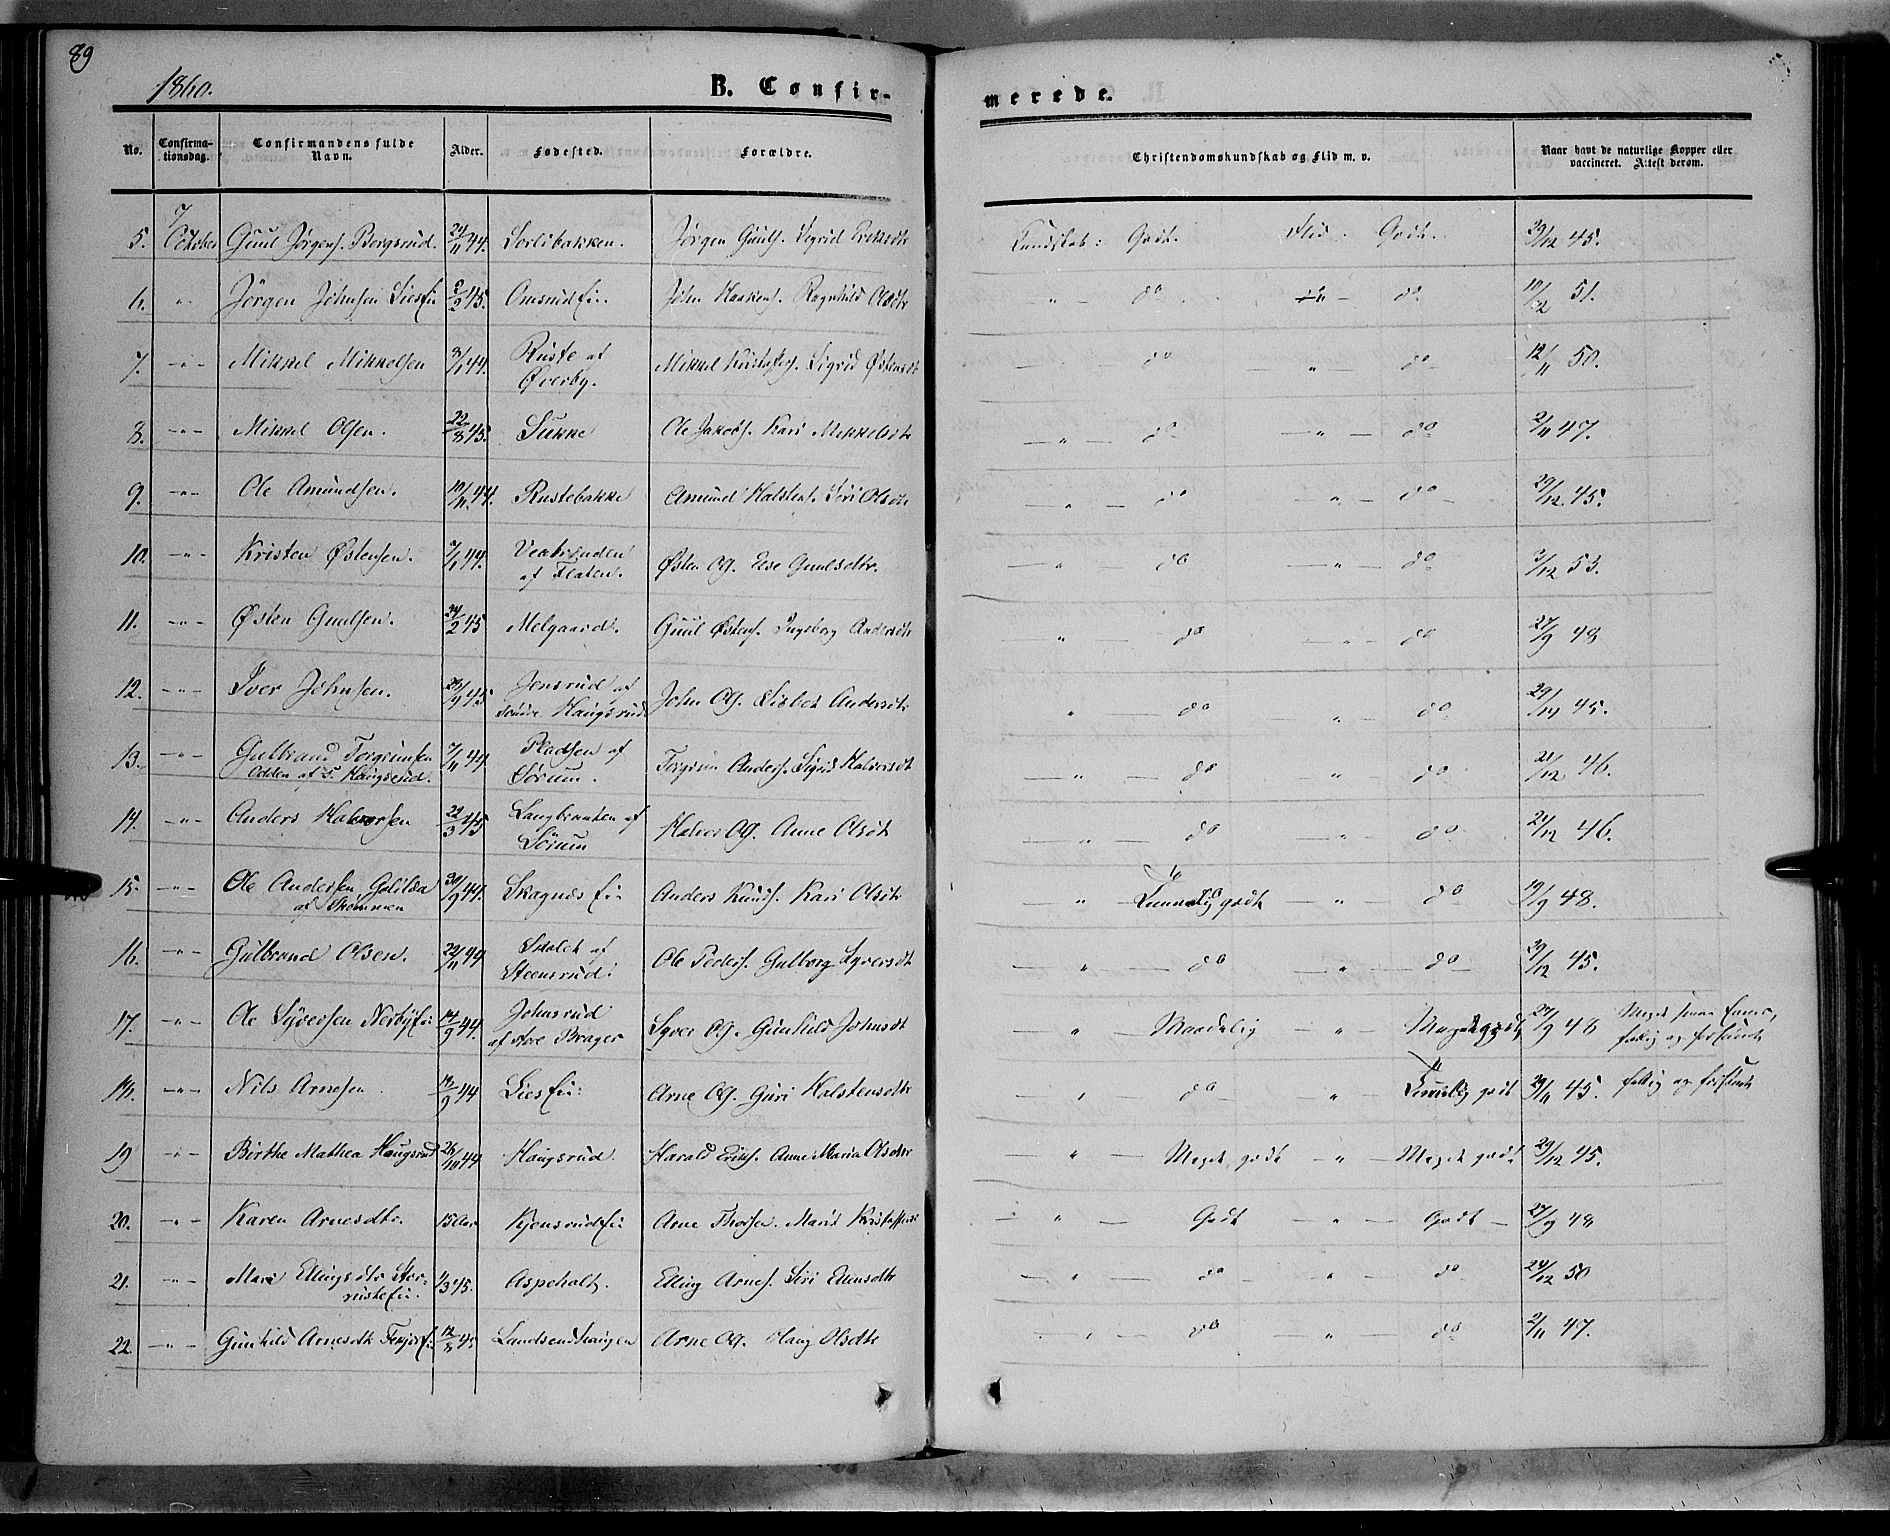 89
1860.
B. Confir-
merede.
No.
Confirma-
tionsdag.
Confirmandens fulde
Navn.
Alder.
Fødested.
Forældre.
Christendomskundskab og Flid m. v.
Naar havt de naturlige Kopper eller
vaccineret. Attest derom.
7
5. October Guul Jørgens. Bergsrud. 24/11 44. Sorlibakken. Jørgen Guuls. Sigrid Eriksdtr Kundskab: Godt. Flid. Godt. 29/12 45.
6. " Jörgen Johnsen Liesei 2/2 45. Omsrudei. John Haakens. Ragnhild Olsdtr " do " do 10/12 51.
7. " Mikkel Mikkelsen 3/1 44. Ruste af
Øverby. Mikkel Kristofers. Sigrid Østensdt do " do 12/11 50.
8. " Mikkel Olsen. 22/8 45. Sukke Ole Jakobs. Kari Mikkelsdtr " do " do 2/11 47.
9. " Ole Amundsen. 10/11 44. Rustebakke Amund Halstens. Siri Olsdtr " do " do 29/12 45.
10. " Kristen Østensen. 7/1 44. Veabraaden
af Flaten. Østen Ols. Else Guulsdtr. " do " do 3/12 53.
11. " Østen Guulsen. 24/2 45 Melgaard. Guul Østens. Ingeborg Andersdtr " do " do 27/9 48
12. " Iver Johnsen. 28/9 45 Jensrud af
søndre Haugsrud John Ols. Lisbet Andersdtr " do " do 29/12 45.
13. " Gulbrand Torgrimsen
Odden af S. Haugsrud. 7/11 44. Pladsen af
Sørum. Torgrim Anders. Sigrid Halvorsdt " do " do 21/12 46.
14. " Anders Halvorsen 22/3 45 Langbraaten af
Sörum Halvor Ols. Anne Olsdt " do " do 21/12 46.
15. " Ole Andersen
af Strømmen 30/9 44. Skagnesei Anders Knuds. Kari Olsdtr " Temmelig godt " do 19/9 48.
16. " Gulbrand Olsen. 29/11 44 Skalet af
Steensrud. Ole Peders. Gulborg Syversdt " do " do 29/12 45.
17. " Ole Syversen Nerbyei 14/9 44. Johnsrud
af store Brager Syver Ols. Gunhild Johnsdt " Maadelig " Meget godt 27/9 48 Meget smaa Evner,
fattig og forsømt
18. " Nils Arnesen 18/9 44 Liesei: Arne Ols. Guri Halstensdtr " do " Temmelig godt 29/11 45. fattig og forsømt
19 " Birthe Mathea Haugsrud 26/10 44 Haugsrud. Harald Eriks. Anne Maria Olsdtr " Meget godt " Meget godt 29/12 45.
20. " Karen Arnesdtr. 15 Aar Kjensrudei Arne Thorsen. Marit " Godt " Godt 27/9 48
21. " Mari Ellingsdtr Stor-
rusteei. 1/3 45. Aspeholt. Elling Arnes. Siri Evensdtr " do " do 21/12 50
22 " Gunhild Arnesdtr 12/8 45 Landsendhaugen Arne Ols. Olsdtr " do " do 2/11 47.